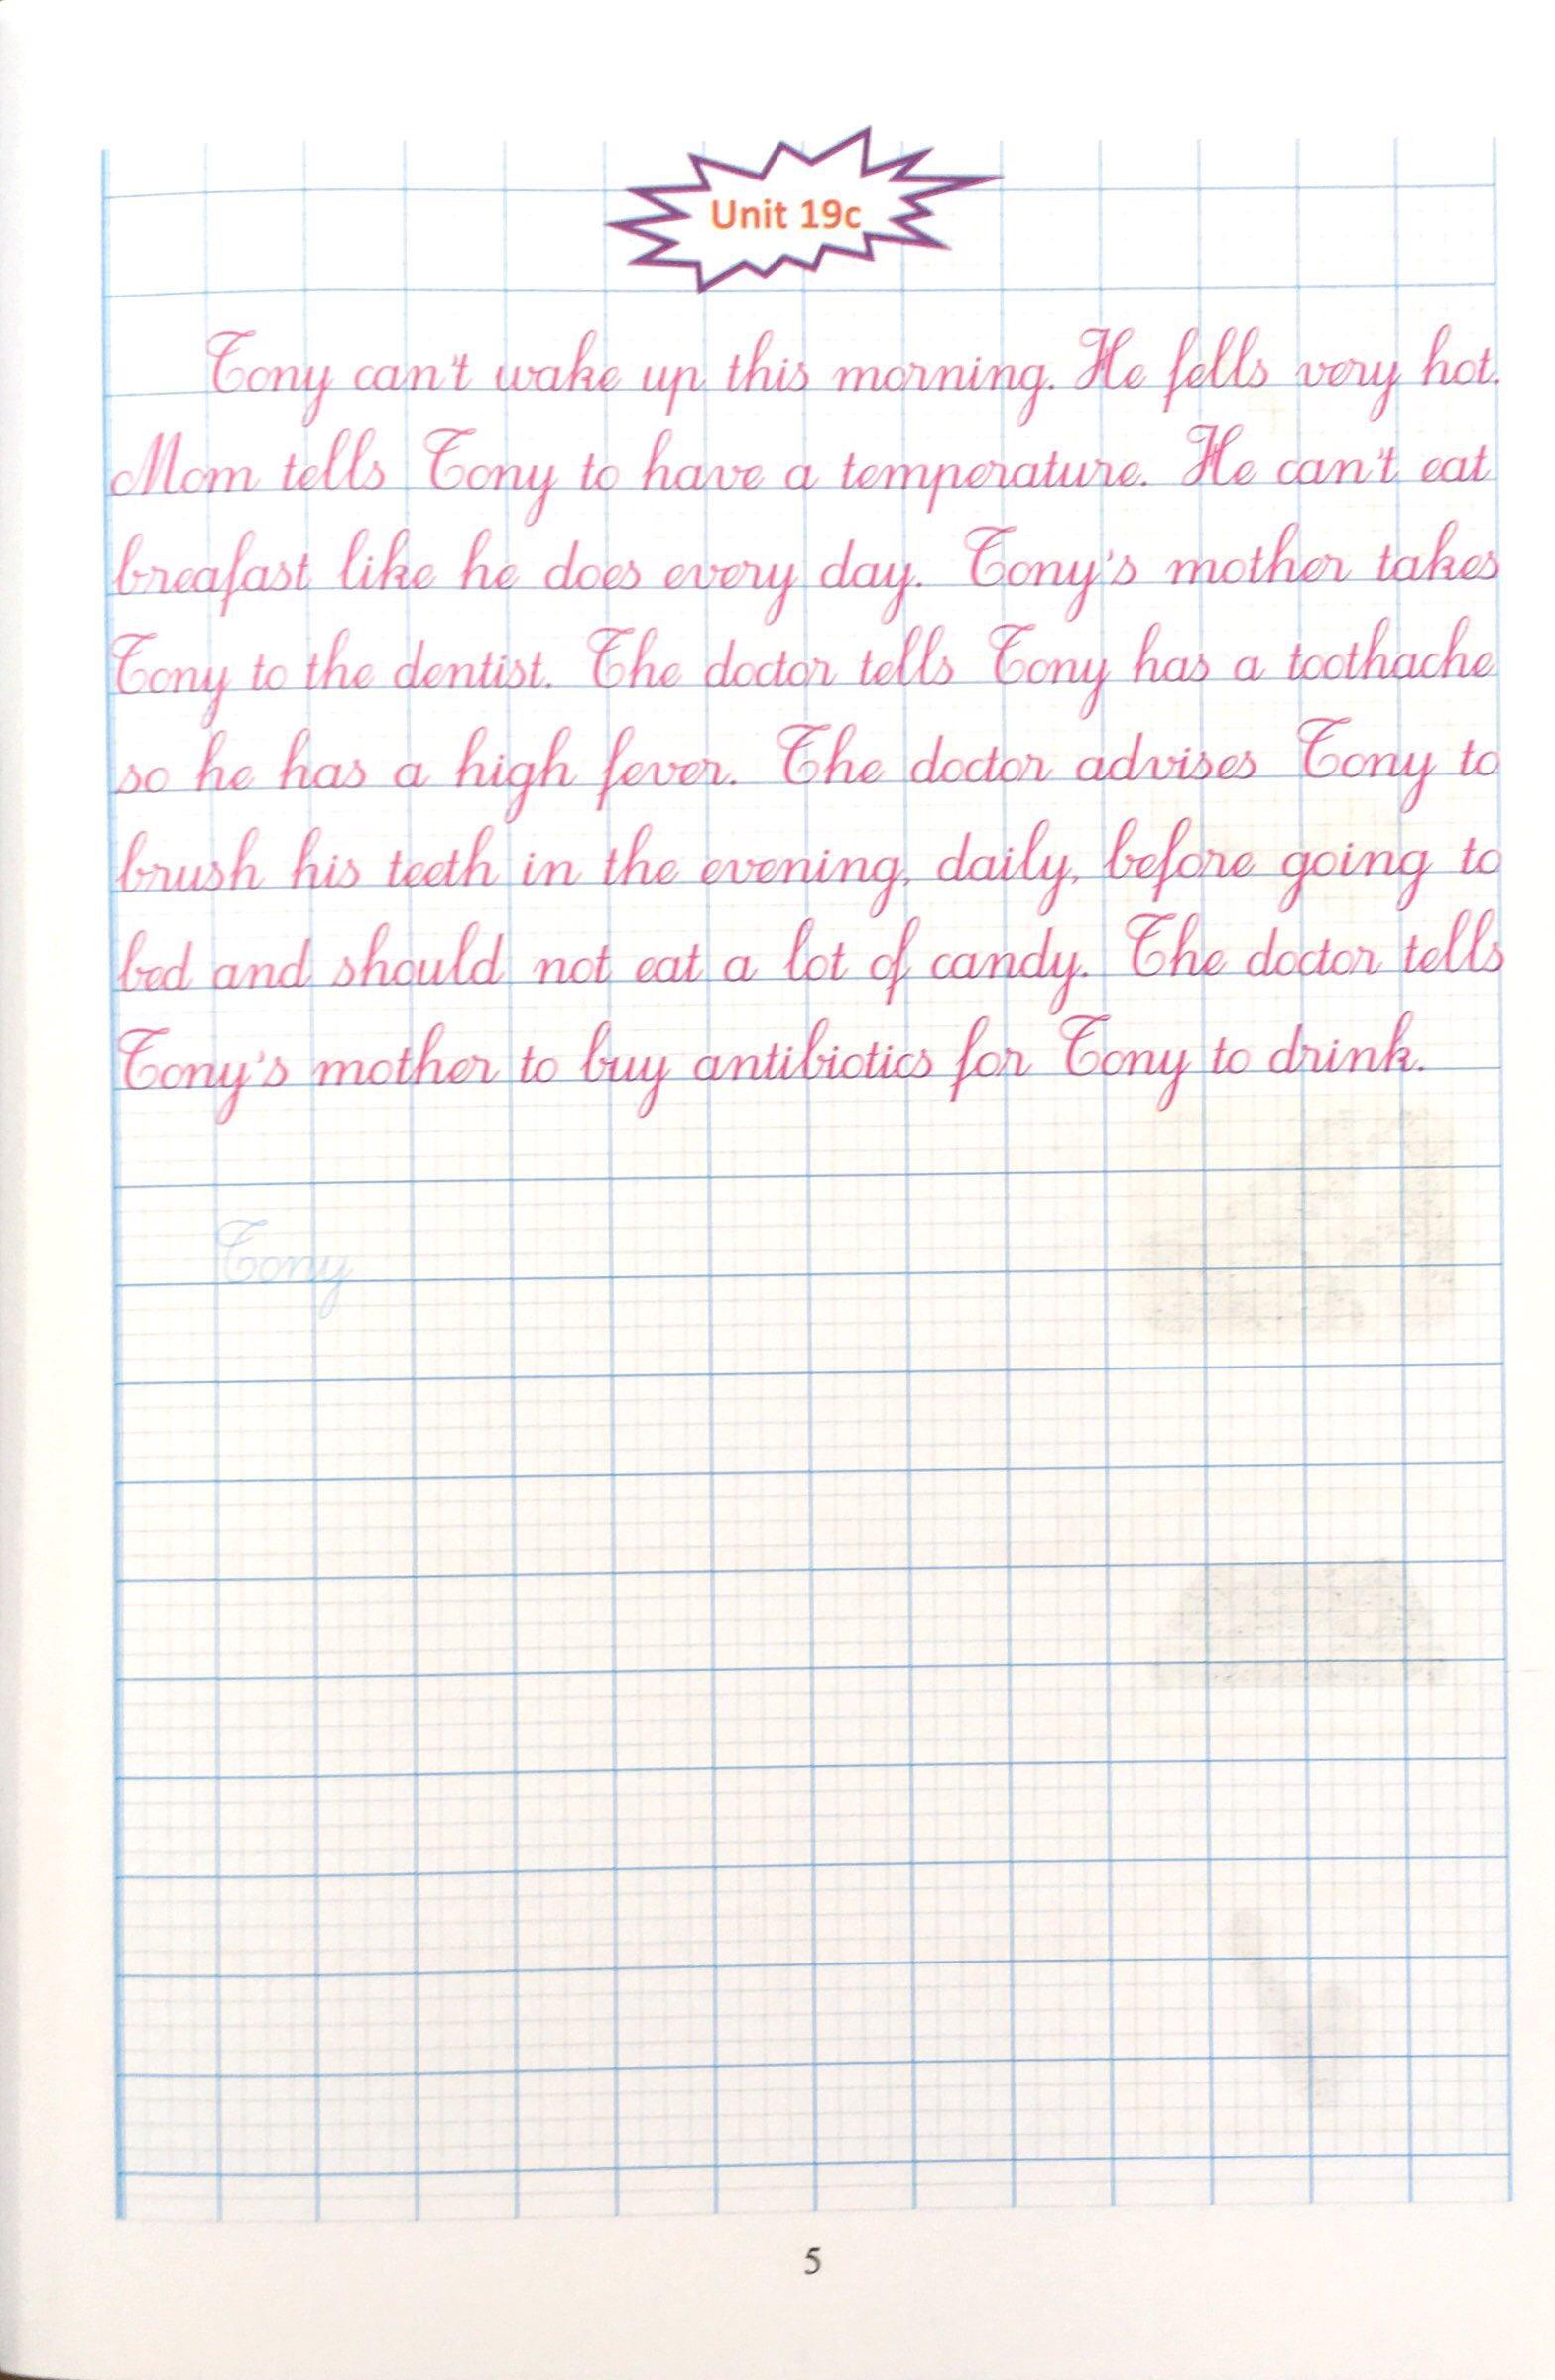 Unit 19c
Tony can't wake up this morning. He fells very hot.
Mom tells Tony to have a temperature. He can't eat
breafast like he does every day. Tony's mother takes
Tony to the dentist. The doctor tells Tony has a toothache
so he has a high fever. The doctor advises Tony to
brush his teeth in the evening, daily, before going to
bed and should not eat a lot of candy. The doctor tells
Tony's mother to buy antibiotics for Tony to drink.
Tony
5